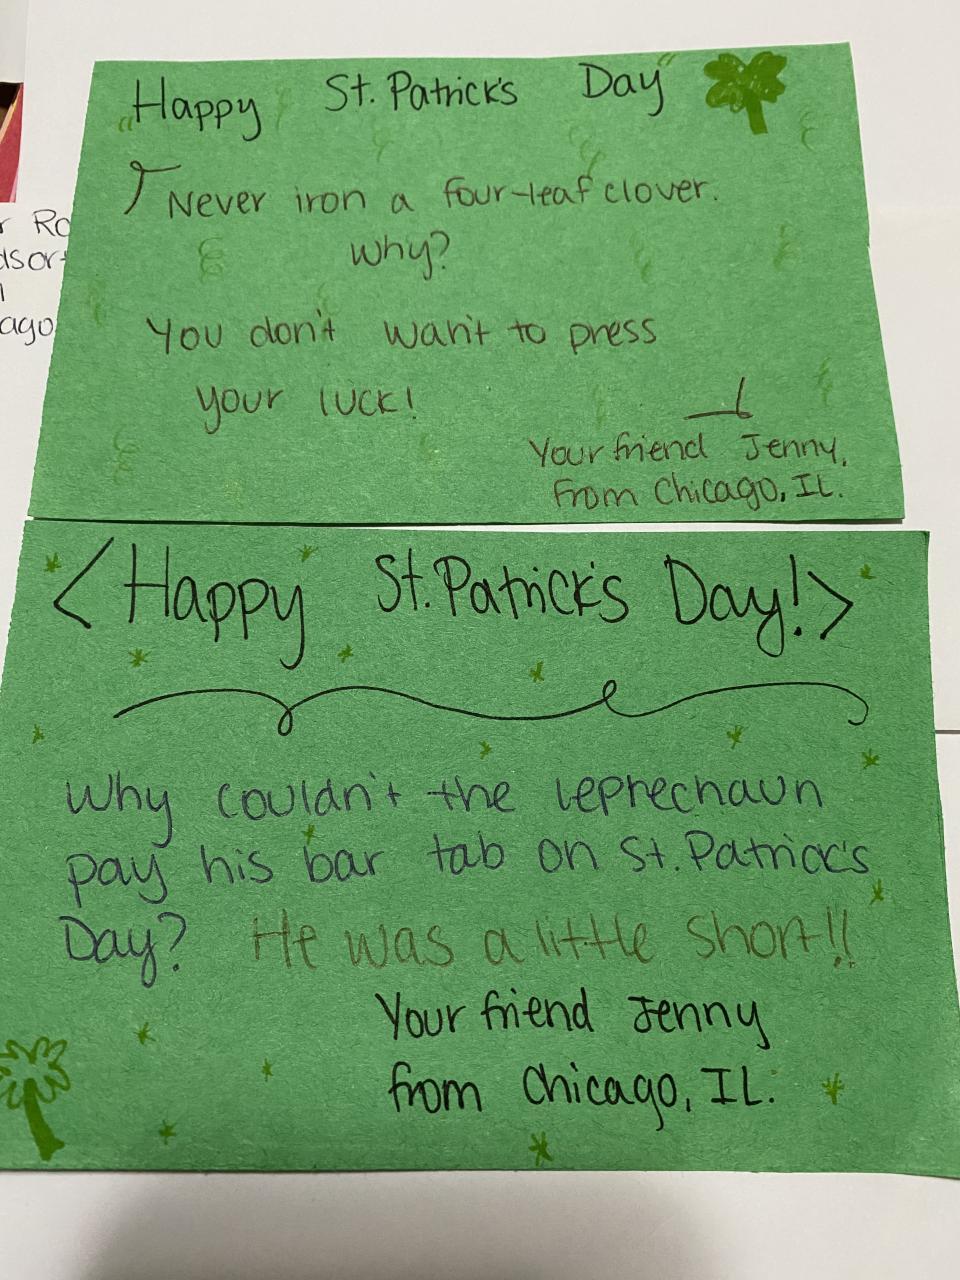 "Happy St. Patrick's Day"
Never iron a four-leaf clover.
Why?
You don't want to press
your luck!
Your friend Jenny,
From Chicago, IL.
<Happy St. Patrick's Day!>
Why couldn't the leprechaun
pay his bar tab on St. Patrick's
Day? He was a little short!!
Your friend Jenny
from Chicago, IL.